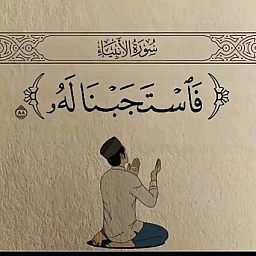 سُورَةُ الأَنبِيَاءِ
﴿فَٱسْتَجَبْنَا لَهُۥ﴾ ٨٨